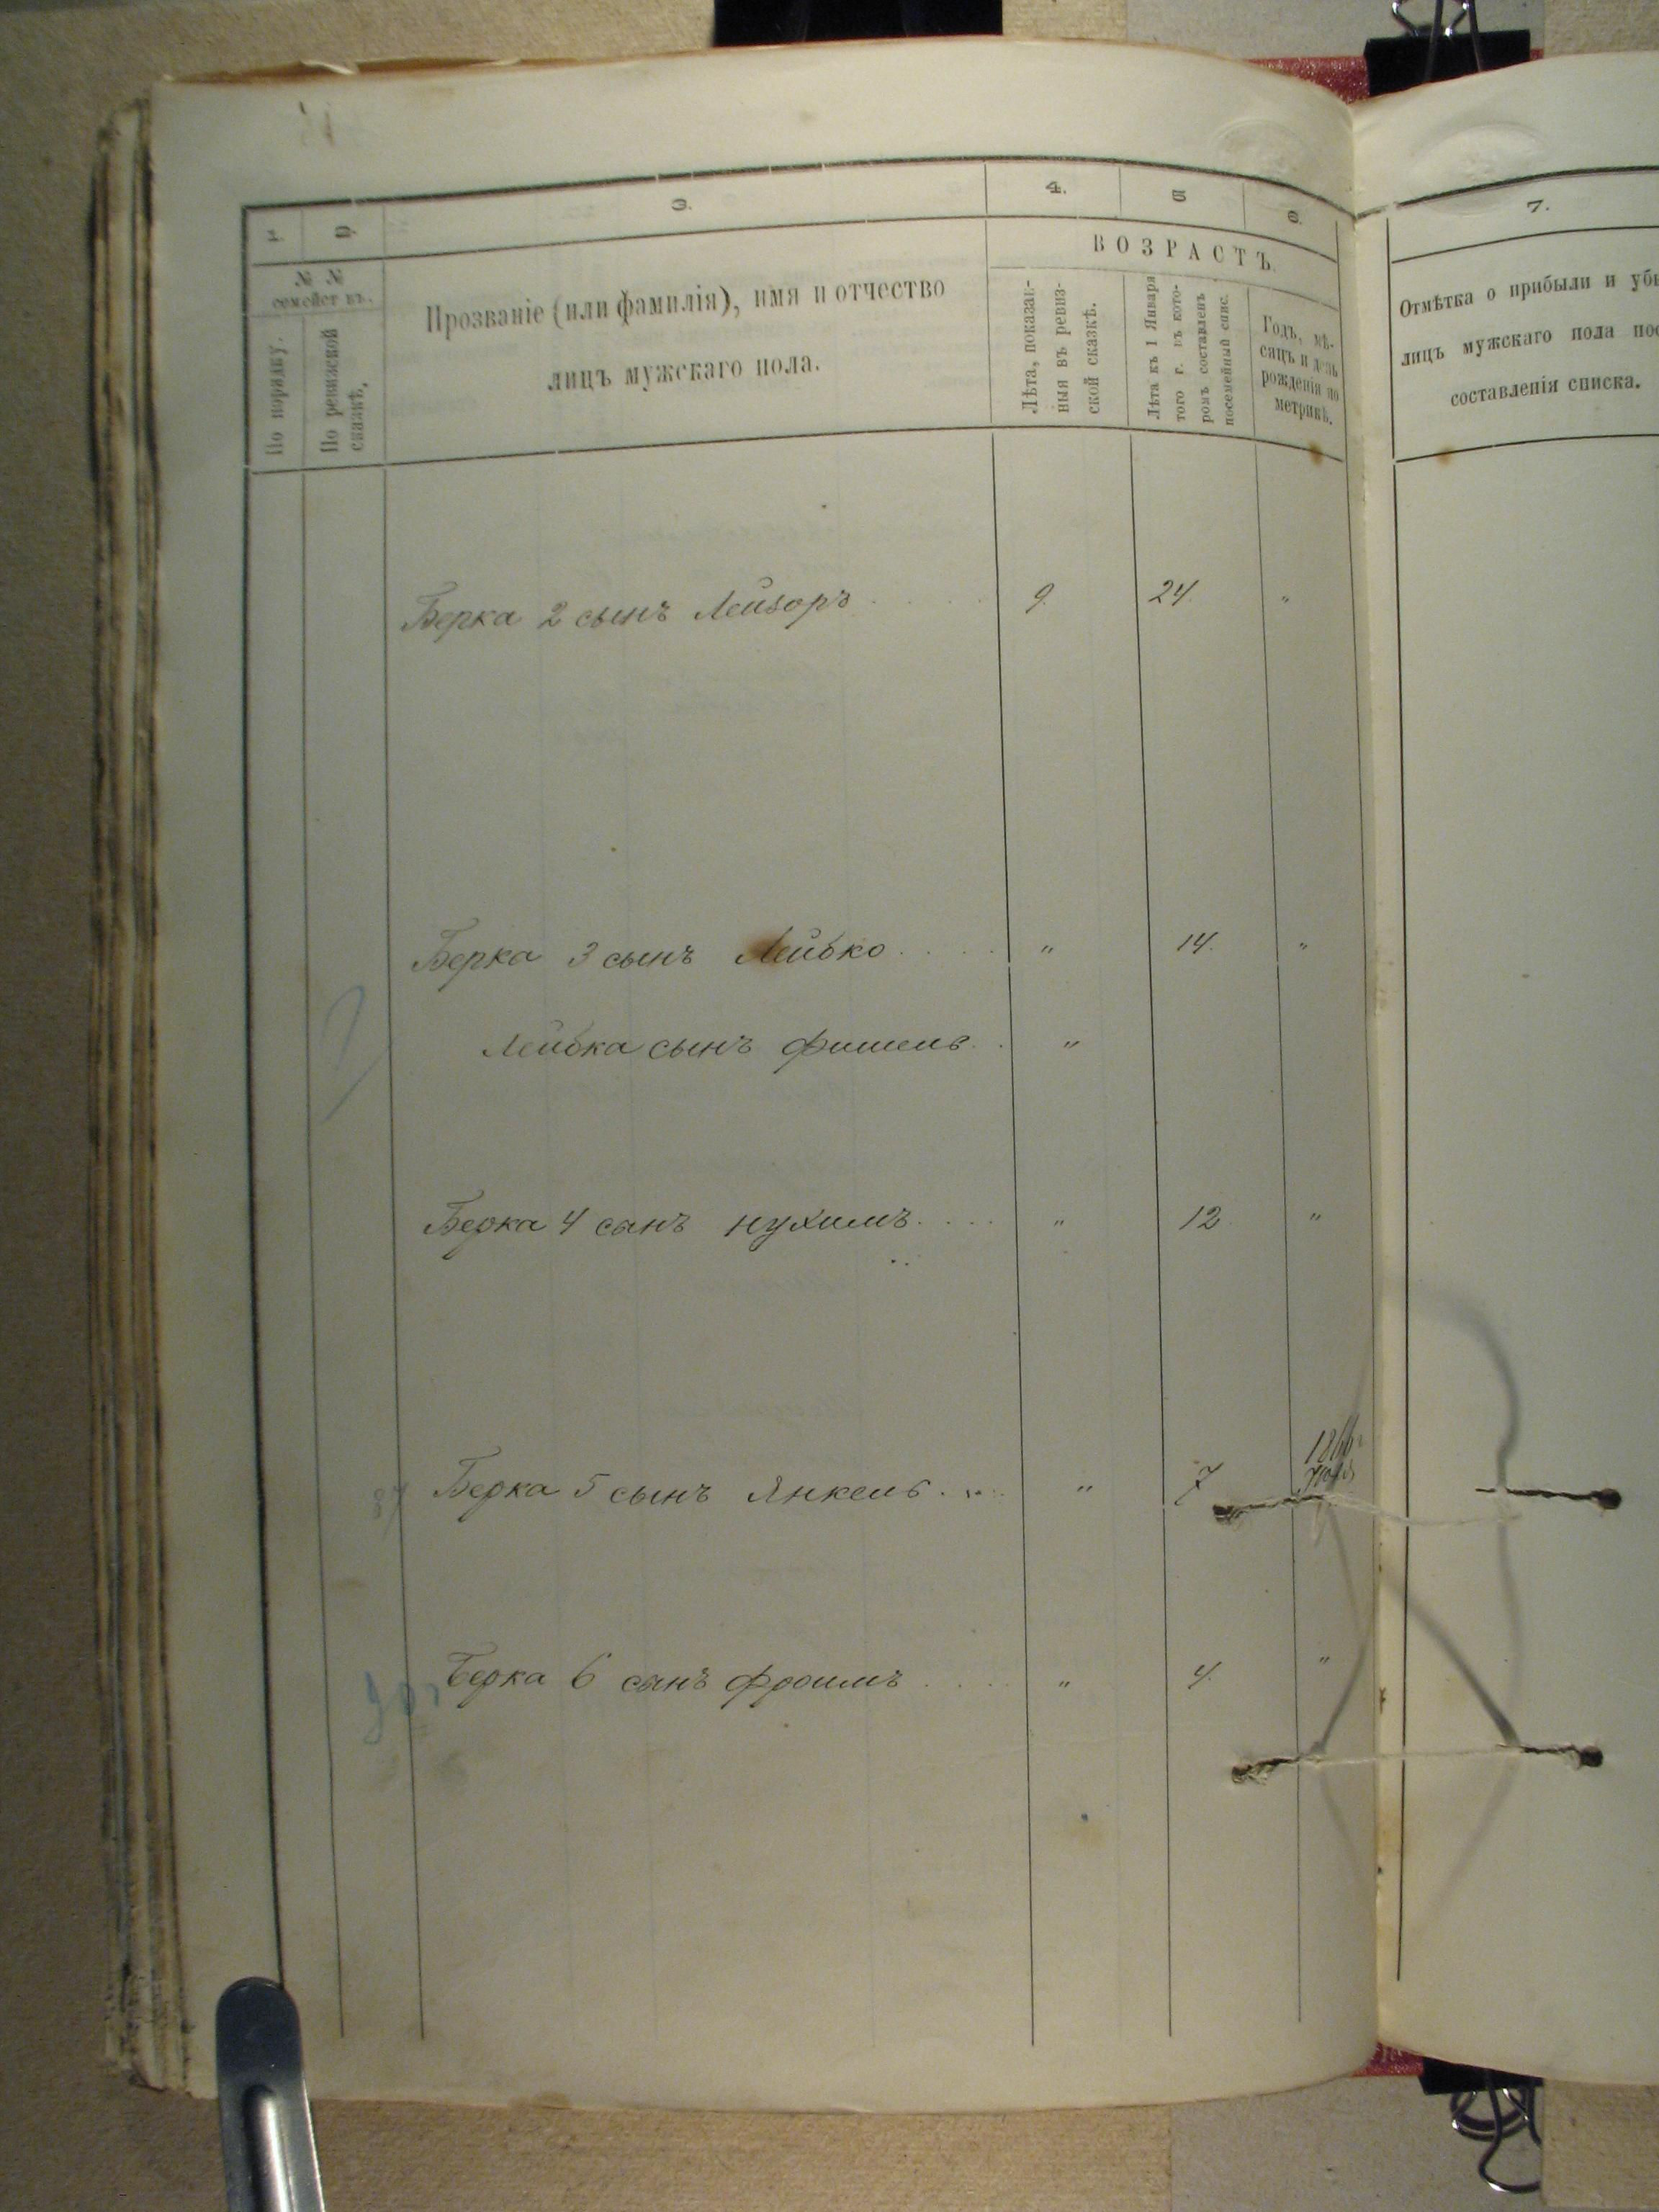 1. 2. 3. 4. 5 6. 7.
№ №
семействъ.
По порядку.
По ревизской
сказкѣ.
Прозваніе (или фамилія), имя и отчество
лицъ мужскаго пола.
ВОЗРАСТЪ.
Лѣта, показан-
ныя въ ревиз-
ской сказкѣ.
Лѣта къ 1 Января
того г. въ кото-
ромъ составленъ
посемейный спис.
Годъ, мѣ-
сяцъ и день
рожденія по
метрикѣ.
Отмѣтка о прибыли и убы
лицъ мужскаго пола пос
составленія списка.
Берка 2 сынъ Лейзоръ 9. 24. "
Берка 3 сынъ Лейбко " 14. "
Лейбка сынъ Фишель "
Берка 4 сынъ Нухимъ " 12 "
Берка 5 сынъ Янкель " 7 1866
Берка 6 сынъ Фроимъ " 4. "